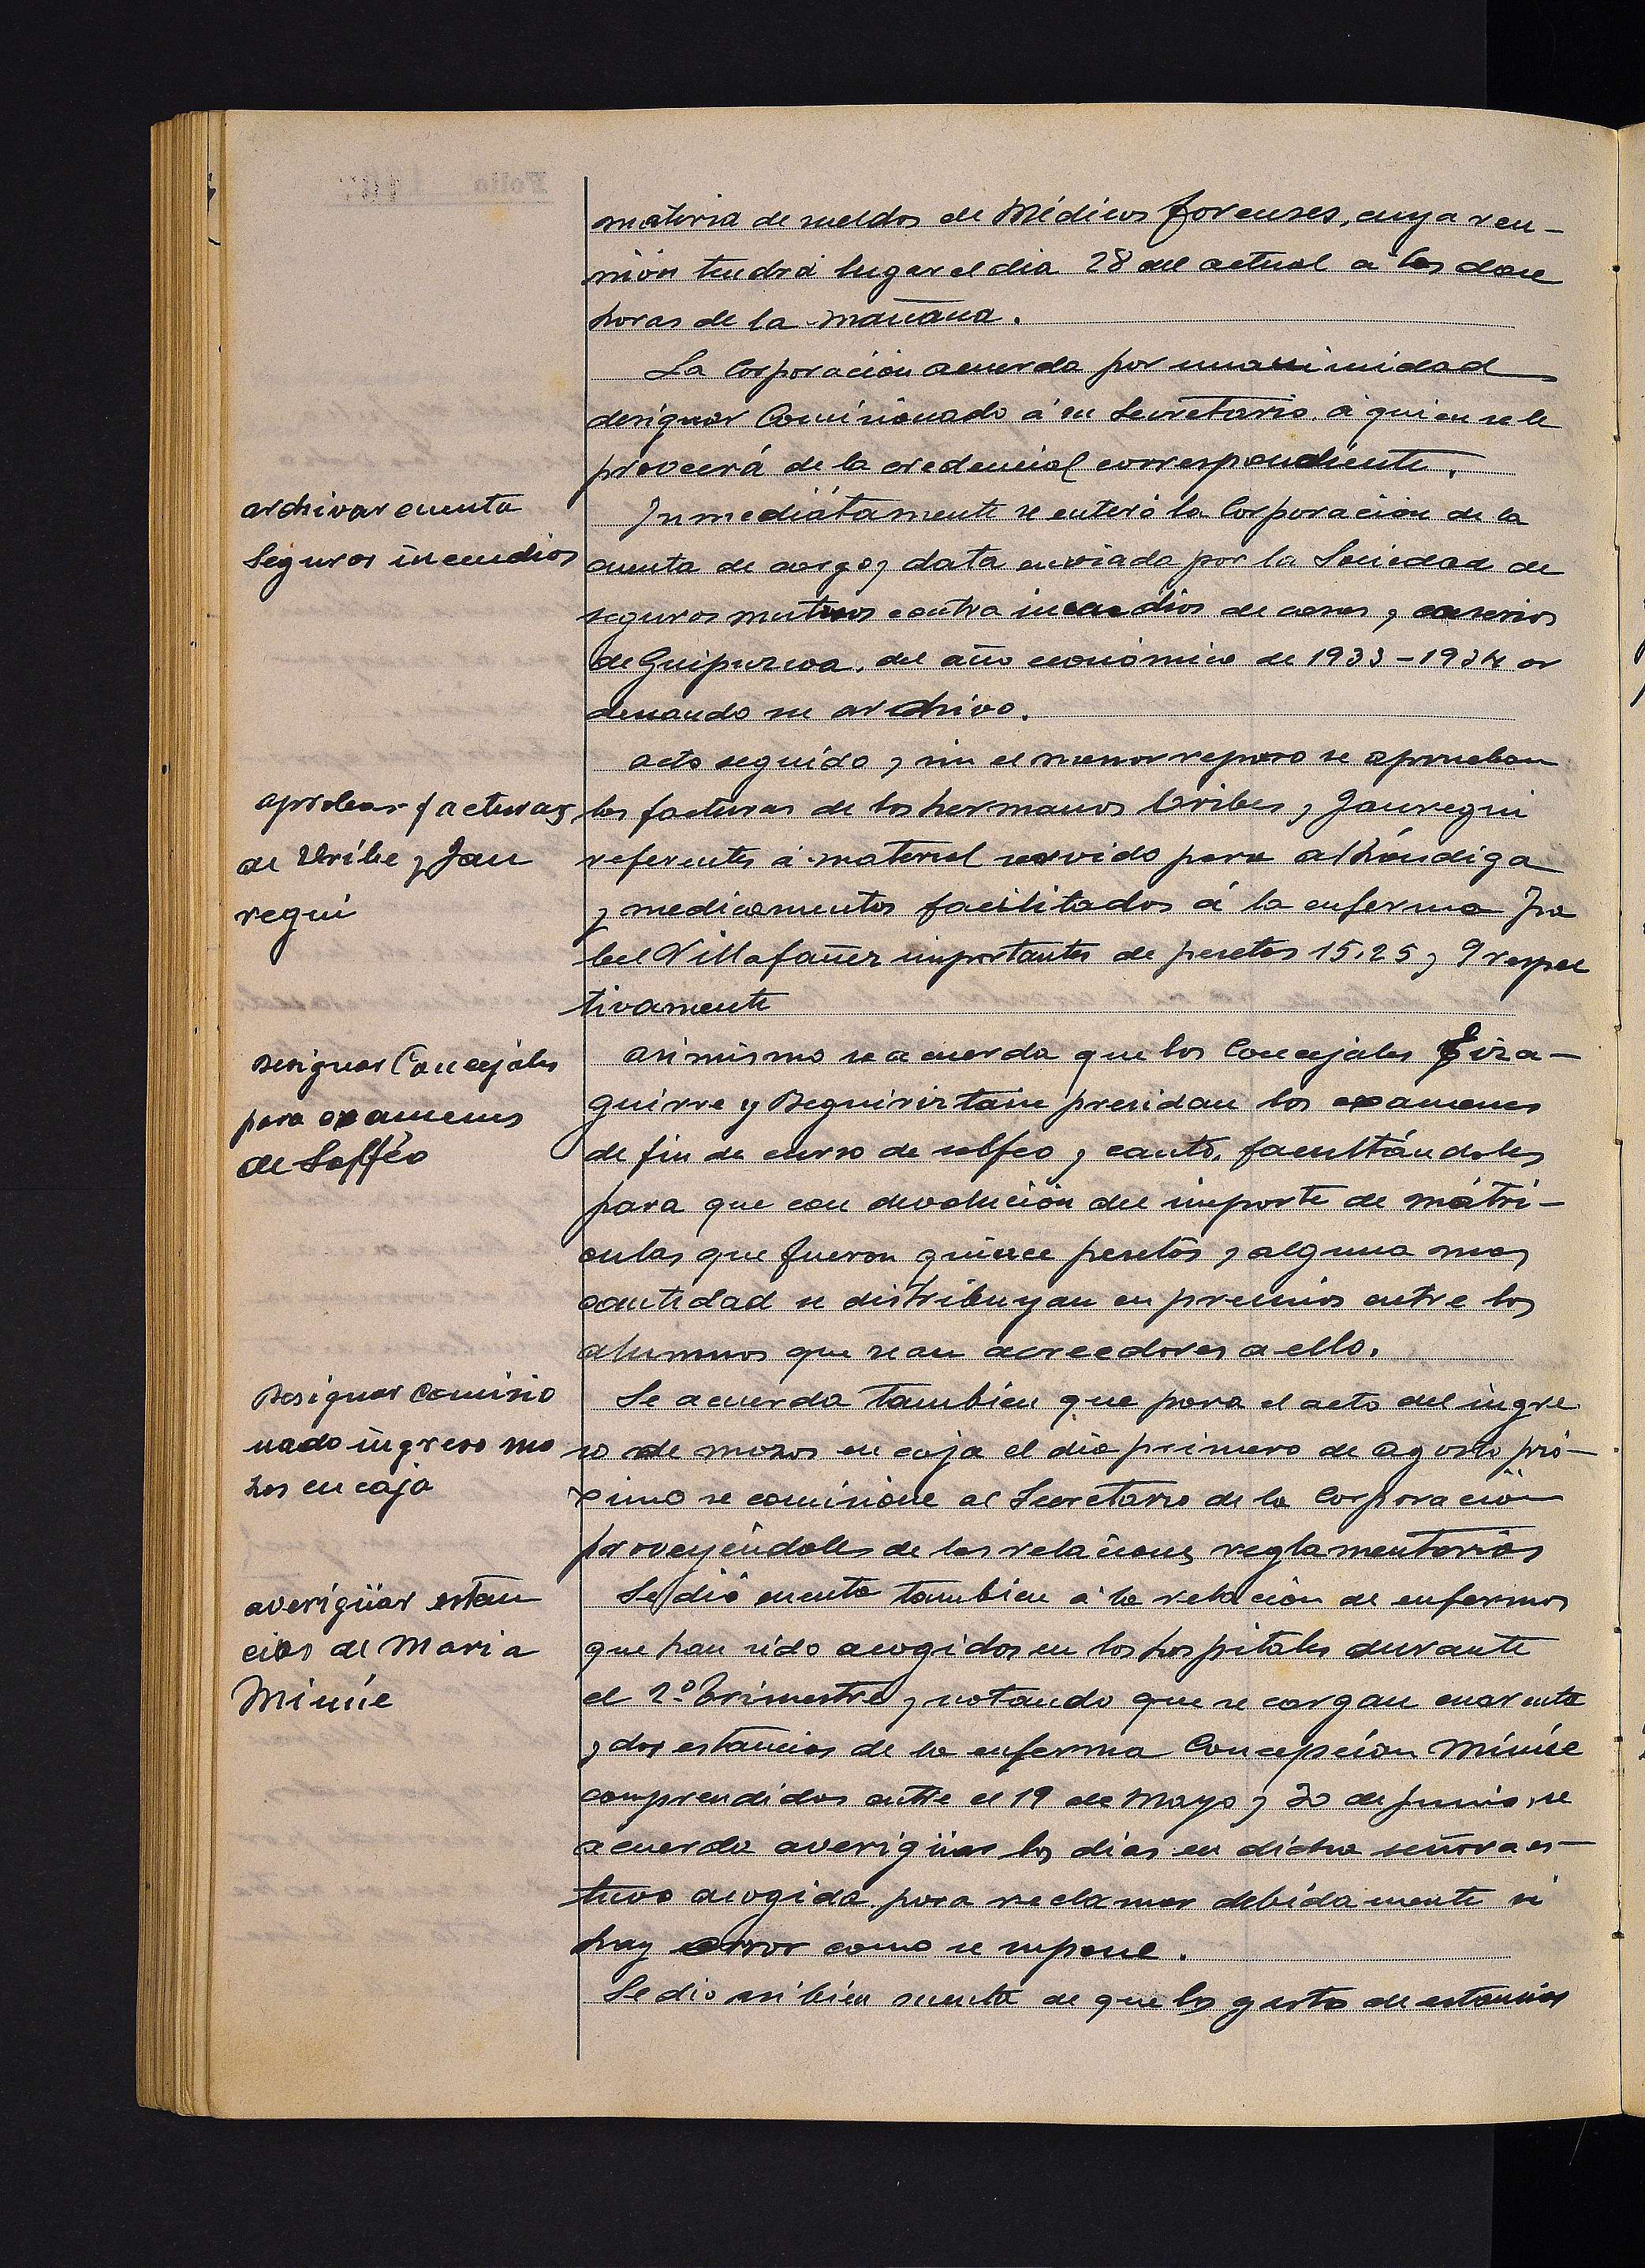 materia de sueldos de Médicos forenses, cuya reu-
nión tendrá lugar el dia 28 del actual a las doce
horas de la mañana.
La Corporación acuerda por unanimidad
designar Comisionado á su Secretario á quien se le
proveerá de la credencial correspondiente.
archivar cuenta
Seguros incendios
Inmediátamente se enteró la Corporación de la
cuenta de cargo y data enviada por la Sociedad de
seguros mutuos contra incendios de casas y caserios
de Guipuzcoa, del año económico de 1933-1934 or
denando su archivo.
aprobar facturas
de Uribe y Jau
regui
acto seguido y sin el menor reparo se aprueban
las facturas de los hermanos Uribes y Jauregui
referentes á material servido para alhóndiga
y medicamentos facilitados á la enferma Isa
bel Villafañez importantes de pesetas 15,25 y 9 respec
tivamente
Designar Concejales
para examenes
de Solfeo
asimismo se acuerda que los Concejales Eiza-
guirre y Beguiriztain presidan los examenes
de fin de curso de solfeo y canto, facultándoles
para que con devolución del importe de mátri-
culas que fueron quince pesetas y alguna mas
cantidad se distribuyan en premios entre los
alumnos que sean acreedores a ello.
Designar Comisio
nado ingreso mo
zos en caja
Se acuerda tambien que para el acto del ingre
so de mozos en caja el dia primero de agosto pró-
ximo se comisione al Secretario de la Corporación
proveyéndoles de las relaciones reglamentarias
averigüar estan
cias de Maria
Minúe
Se dió cuenta tambien á la relación de enfermos
que han sido acogidos en los hospitales durante
el 2º Trimestre y notando que se cargan cuarenta
y dos estancias de la enferma Concepción Minúe
comprendidos entre el 19 de Mayo y 30 de Junio, se
acuerda averigüar los dias en dicha señora es-
tuvo acogida para reclamar debidamente si
hay error como se supone.
Se dio asi bien cuenta de que los gastos de estancias